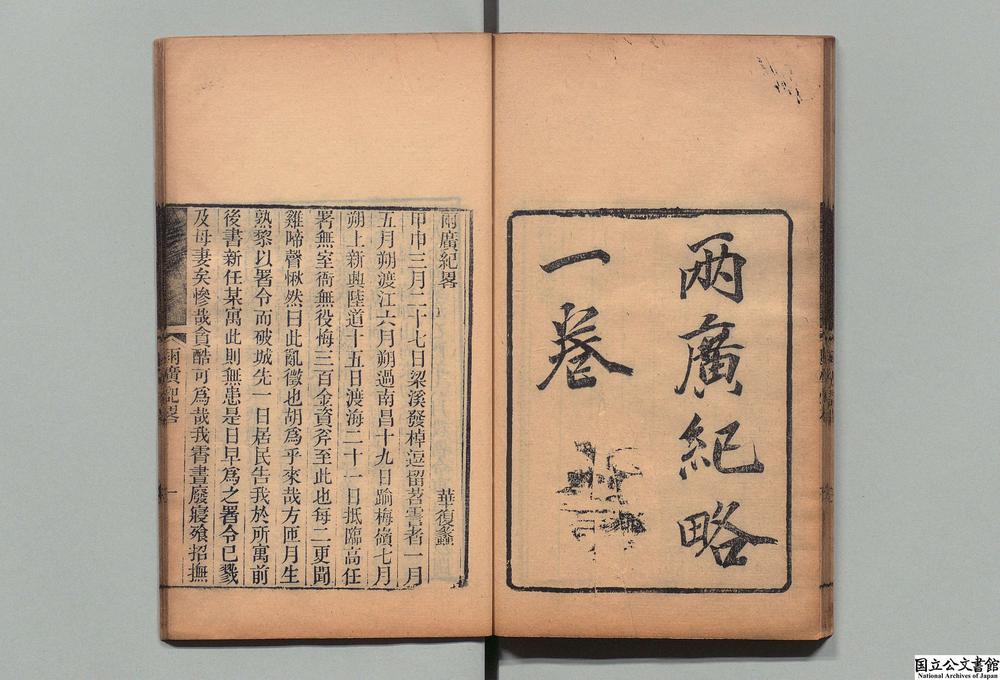 兩廣紀略
一卷
兩廣紀畧
華復蠡
甲申三月二十七日梁溪發棹逗留苕霅者一月
五月朔渡江六月朔過南昌十九日踰梅嶺七月
朔上新興陸道十五日渡海二十一日抵臨高任
署無室衙無役悔三百金資斧至此也每二更聞
雞啼聲愀然曰此亂徵也胡爲乎來哉方匝月生
熟黎以署令而破城先一日居民告我於所寓前
後書新任某寓此則無患是日早爲之署令已戮
及母妻矣慘哉貪酷可爲哉我宵晝廢寢飱招撫
兩廣紀畧
一
国立公文書館
National Archives of Japan